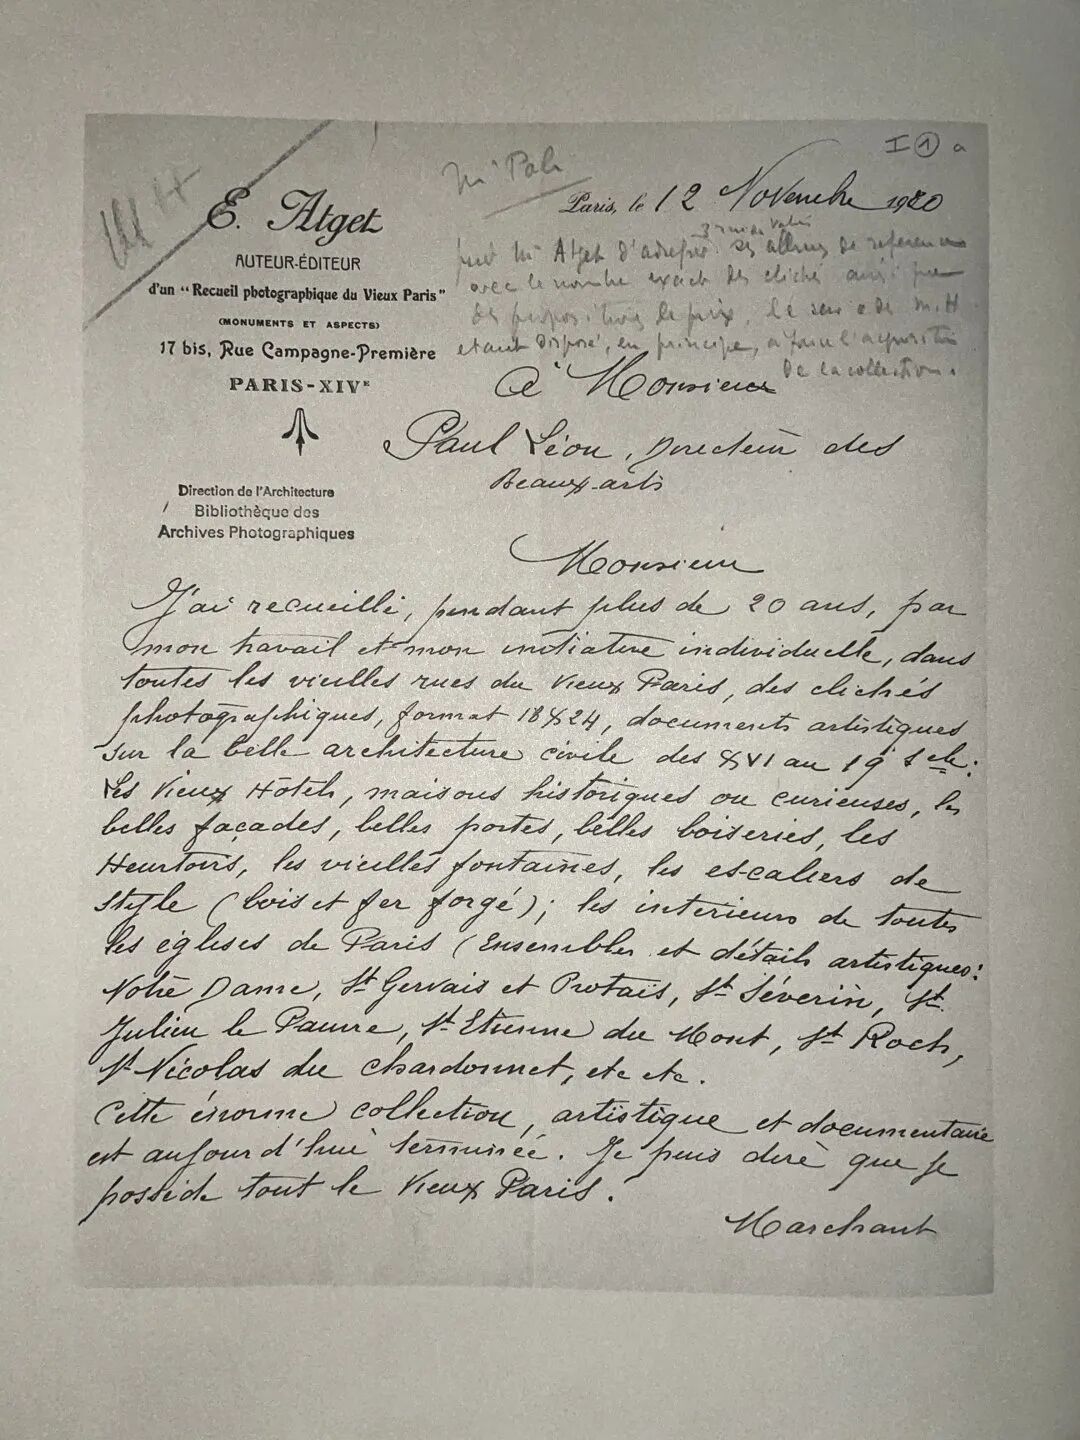 I ① a
Mr Pab
E. Atget
AUTEUR-ÉDITEUR
d'un "Recueil photographique du Vieux Paris"
(MONUMENTS ET ASPECTS)
17 bis, Rue Campagne-Première
PARIS-XIVe
Paris, le 12 Novembre 1920
Mr Atget d'adresser ses albums de reference
avec le nombre exact des clichés ainsi que
des propositions de prix, le de M. H
etant disposé, en principe, a faire l'acquisition
de la collection.
à Monsieur
Paul Léon, Directeur des
Beaux-arts
Direction de l'Architecture
Bibliothèque des
Archives Photographiques
Monsieur
J'ai recueilli, pendant plus de 20 ans, par
mon travail et mon initiative individuelle, dans
toutes les vieilles rues du Vieux Paris, des clichés
photographiques, format 18X24, documents artistiques
sur la belle architecture civile des XVI au 19e scle:
Les Vieux Hôtels, maisons historiques ou curieuses, les
belles façades, belles portes, belles boiseries, les
Heurtoirs, les vieilles fontaines, les escaliers de
style (bois et fer forgé); les interieurs de toutes
les églises de Paris (Ensembles et détails artistiques:
Notre Dame, St Gervais et Protais, St Séverin, St.
Julien le Pauvre, St Etienne du Mont, St Roch,
St Nicolas du Chardonnet, etc etc.
Cette énorme collection, artistique et documentaire
est aujourd'hui terminée. Je puis dire que je
possède tout le Vieux Paris.
Marchant